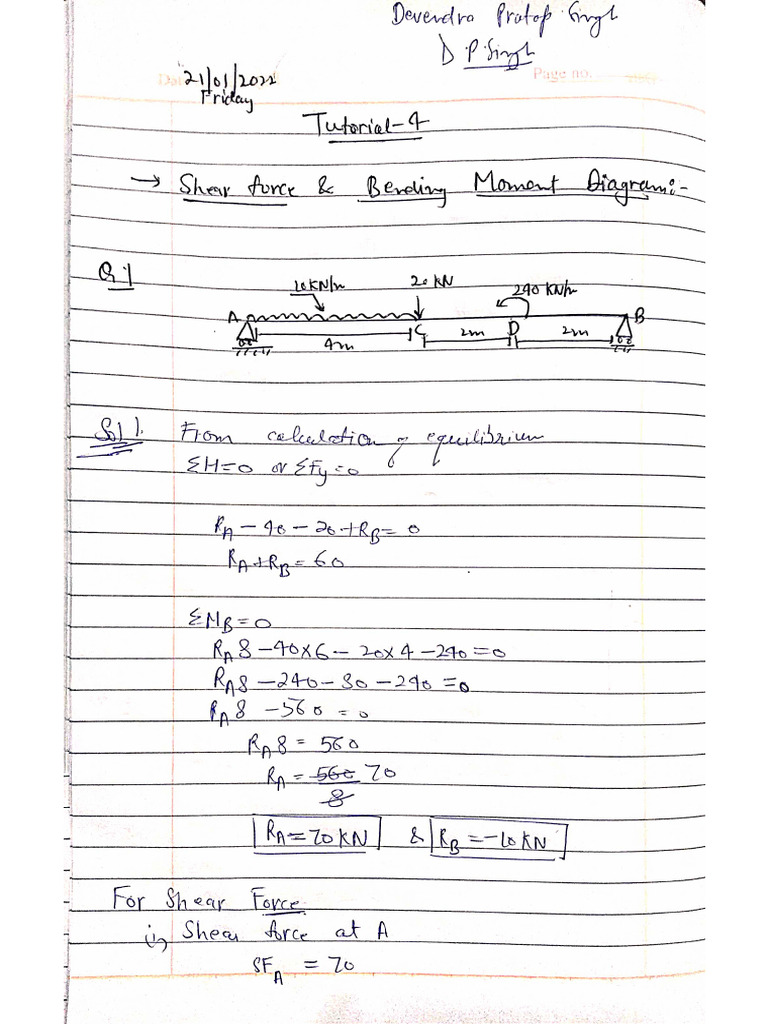 Devendra Pratap Singh
D P. Singh
Date 21/01/2022
Page no.
Friday
Tutorial-4
→ Shear force & Bending Moment Diagram:-
Q.1
10KN/m 20 KN 240 KN/m
A C D B
4m 2m 2m
Sol 1. From calculation of equilibrium
ΣH=0 or ΣFy=0
RA - 40 - 20 + RB = 0
RA + RB = 60
ΣMB = 0
RA 8 - 40 x 6 - 20 x 4 - 240 = 0
RA 8 - 240 - 80 - 240 = 0
RA 8 - 560 = 0
RA 8 = 560
RA = 560 70
8
RA = 70 KN & RB = -10 KN
For Shear Force
i) Shear force at A
SFA = 70